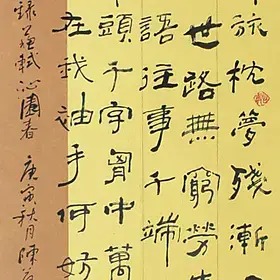 旅枕夢殘漸
世路無窮勞生
語往事千端
頭千字胷中萬
在我袖手何妨
錄蘇軾沁園春 庚寅秋月陳